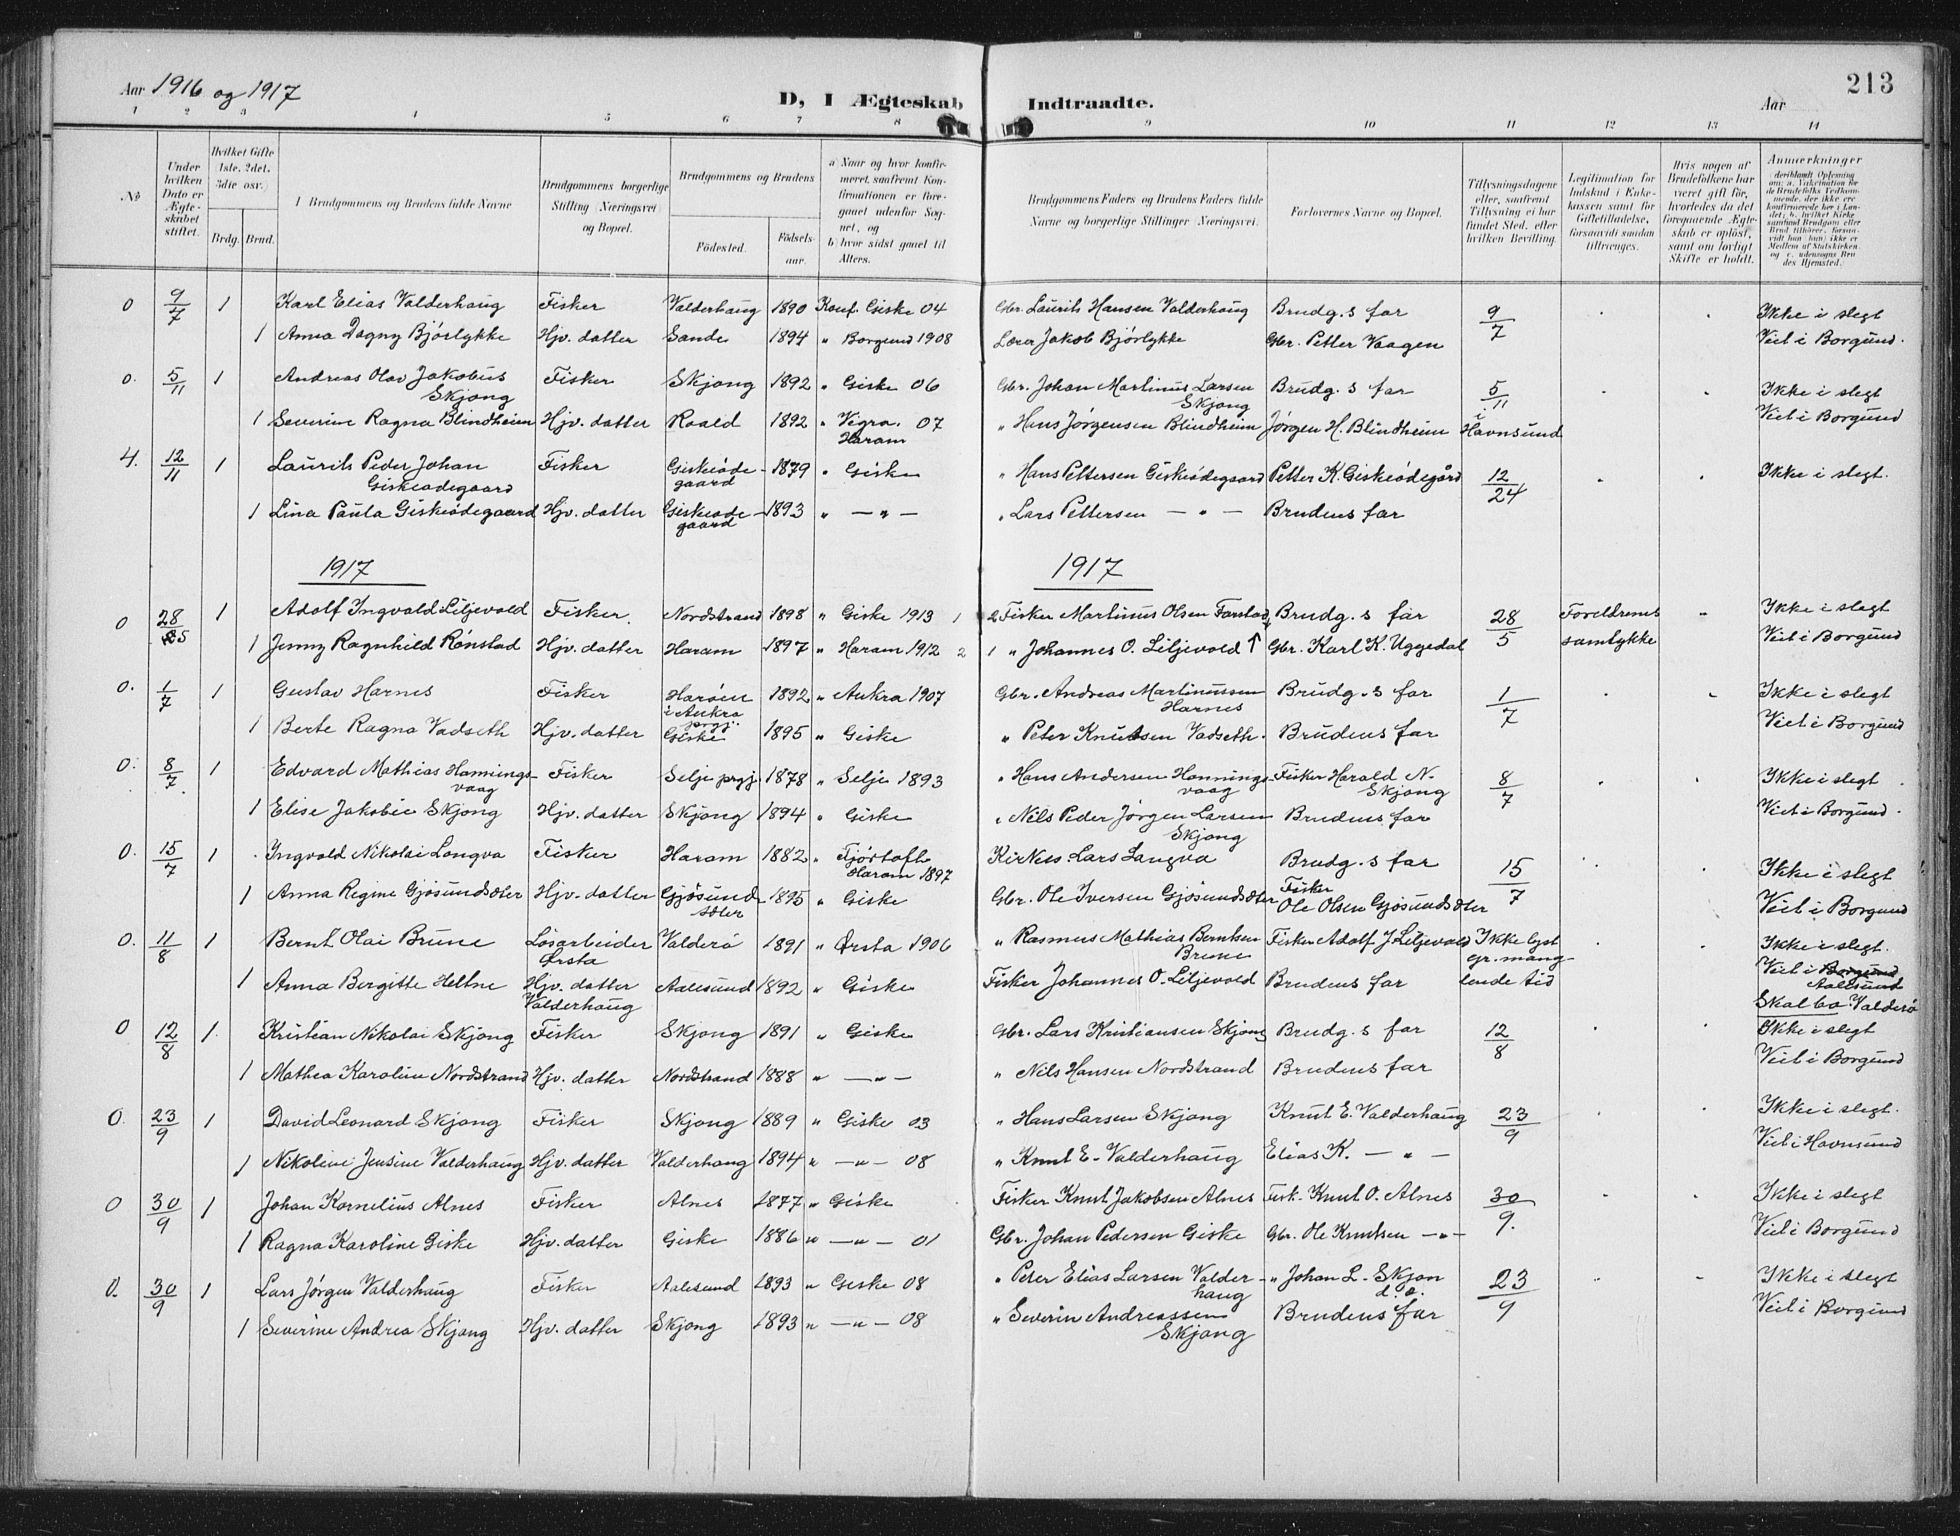 Aar 1916 og 1917
D, I Ægteskab Indtraadte.
Aar
213
1 2 3 4 5 6 7 8 9 10 11 12 13 14
No
Under hvilken Dato er Ægteskabet stiftet.
Hvilket Gifte 1ste, 2det, 3die osv.
Brdg. Brud.
Brudgommens og Brudens fulde Navne
Brudgommens borgerlige Stilling (Næringsvei) og Bopæl.
Brudgommens og Brudens
Födested.
Födselsaar.
a) Naar og hvor konfirmeret, saafremt Konfirmationen er foregaaet udenfor Sognet, og
b) hvor sidst gaaet til Alters.
Brudgommens Faders og Brudens Faders fulde Navne og borgerlige Stillinger (Næringsvei).
Forlovernes Navne og Bopæl.
Tillysningsdagene eller, saafremt Tillysning ei har fundet Sted, efter hvilken Bevilling.
Legitimation for Indskud i Enkekassen samt for Giftetilladelse, forsaavidt saadan tiltrænges.
Hvis nogen af Brudefolkene har været gift för, hvorledes da det foregaaende Ægteskab er oplöst, samt om lovligt Skifte er holdt.
Anmærkninger
0 9/7 1 Karl Elias Valderhaug Fisker Valderhaug 1890 Konf. Giske 04 Gbr. Laurits Hansen Valderhaug Brudg.s far 9/7 Ikke i slegt
1 Anna Dagny Bjørlykke Hjv. datter Sande 1894 " Borgund 1908 Lærer Jakob Bjørlykke Gbr. Petter Vaagen Viet i Borgund.
0. 5/11 1 Andreas Olav Jakobus Fisker Skjong 1892 " Giske 06 Gbr. Johan Martinus Larsen Brudg.s far 5/11 Ikke i slegt
Skjong Skjong i
1 Severine Ragna Blindheim Hjv. datter Roald 1892 " Vigra. 07 " Hans Jørgensen Blindheim Jørgen H. Blindheim Havnsund Viet i Borgund
Haram
4. 12/11 1 Laurits Peder Johan Fisker Giskeøde- 1879 " Giske " Hans Pettersen Giskeødegaard Petter K. Giskeødegård 12/24 Ikke i slegt.
Giskeødegaard gaard
1 Lina Paula Giskeødegaard Hjv. datter Giskeøde- 1893 " — " — " Lars Pettersen — " — Brudens far
gaard
1917 1917
0 28/5 1 Adolf Ingvald Liljevold Fisker. Nordstrand 1898 " Giske 1913 1 2 Fisker Martinus Olsen Farstad Brudg.s far 28/5 Foreldrenes Ikke i slegt
1 Jenny Ragnhild Rønstad Hjv. datter Haram 1897 " Haram 1912 2 1 " Johannes O. Liljevold ↑ Gbr. Karl K. Uggedal samtykke Viet i Borgund
0. 1/7 1 Gustav Harnes Fisker Harøen 1892 " Aukra 1907 Gbr. Andreas Martinussen Brudg.s far 1/7 Ikke i slegt
i Aukra Harnes
prgj.
1 Berte Ragna Vadseth Hjv. datter Giske 1895 " Giske " Peter Knutsen Vadseth. Brudens far Viet i Borgund
0. 8/7 1 Edvard Mathias Hannings- Fisker Selje prgj. 1878 " Selje 1893 " Hans Andersen Hannings- Fisker Harald N. 8/7 Ikke i slegt
vaag vaag Skjong
1 Elise Jakobie Skjong Hjv. datter Skjong 1894 " Giske " Nils Peder Jørgen Larsen Brudens far Viet i Borgund.
Skjong
0. 15/7 1 Ingvald Nikolai Longva Fisker Haram 1882 " Fjørtoft Lars Longva Brudg.s far 15/7 Ikke i slegt
Haram 1897
1 Anna Regine Gjøsundsæter Hjv. datter Gjøsund- 1895 " Giske Gbr. Ole Iversen Gjøsundsæter Fisker Viet i Borgund
sæter Ole Olsen Gjøsundsæter
0. 11/8 1 Bernt Olai Brune Løsarbeider Valderø 1891 " Ørsta 1906 " Rasmus Mathias Berntsen Fisker Adolf J. Liljevold Ikke lyst Ikke i slegt.
Ørsta Brune gr. mang-
1 Anna Bergitte Heltne Hjv. datter Aalesund 1892 " Giske Fisker Johannes O. Liljevold Brudens far lende tid Viet i Borgund
Valderhaug Aalesund
Skal bo: Valderø
0 12/8 1. Kristian Nikolai Skjong Fisker Skjong 1891 " Giske Gbr. Lars Kristiansen Skjong Brudg.s far 12/8 Ikke i slegt
1 Mathea Karoline Nordstrand Hjv. datter Nordstrand 1888 " — " — " Nils Hansen Nordstrand Brudens far Viet i Borgund
0. 23/9 1 David Leonard Skjong Fisker Skjong 1889 " Giske 03 " Hans Larsen Skjong Knut E. Valderhaug 23/9 Ikke i slegt.
1 Nikoline Jensine Valderhaug Hjv. datter Valderhaug 1894 " — " — 08 " Knut E. Valderhaug Elias K. — " — Viet i Havnsund
0 30/9 1 Johan Kornelius Alnes Fisker Alnes 1877 " Giske Fisker Knut Jakobsen Alnes Fisk. Knut O. Alnes 30/9. Ikke i slegt
1 Ragna Karoline Giske Hjv. datter Giske 1886 " — " — 01 Gbr. Johan Pedersen Giske Gbr. Ole Knutsen — " — Viet i Borgund
0. 30/9 1 Lars Jørgen Valderhaug Fisker Aalesund 1893 " Giske 08 " Peter Elias Larsen Valder- " Johan L. Skjon 23/9 Ikke i slegt
haug d.o.
1 Severine Andrea Skjong Hjv. datter Skjong 1893 " — " — 08 " Severin Andreassen Brudens far Viet i Borgund
Skjong